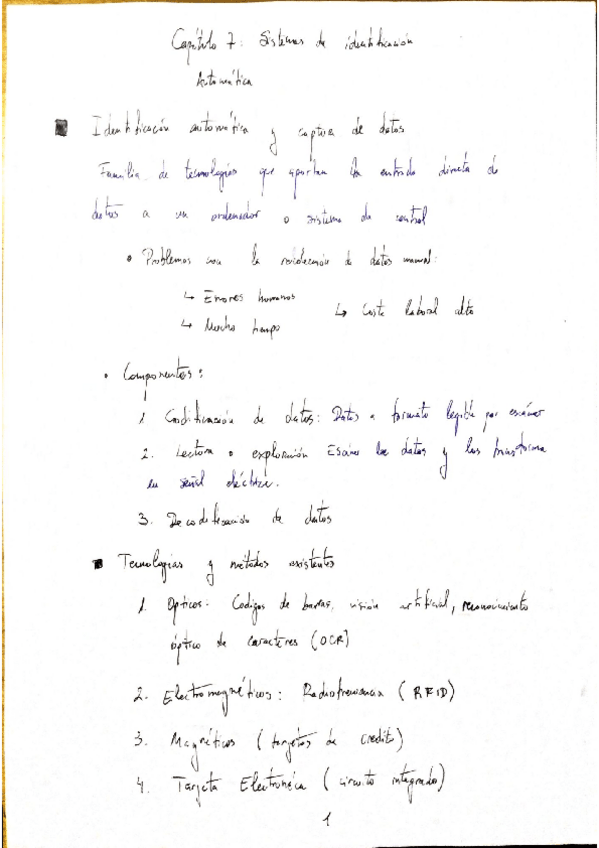 Capítulo 7: Sistemas de identificación
Automática
Identificación automática y captura de datos
Familia de tecnologías que aportan la entrada directa de
datos a un ordenador o sistema de control
• Problemas con la recolección de datos manual:
↳ Errores humanos
↳ Coste laboral alto
↳ Mucho tiempo
• Componentes:
1. Codificación de datos: Datos a formato legible por escáner
2. Lectora o exploración Escáner lee datos y los transforma
en señal eléctrica.
3. Decodificación de datos
Tecnologías y métodos existentes
1. Opticos: Codigos de barras, visión artificial, reconocimiento
óptico de caracteres (OCR)
2. Electromagnéticos: Radiofrecuencia (RFID)
3. Magnéticos (tarjetas de credito)
4. Tarjeta Electrónica (circuito integrado)
1